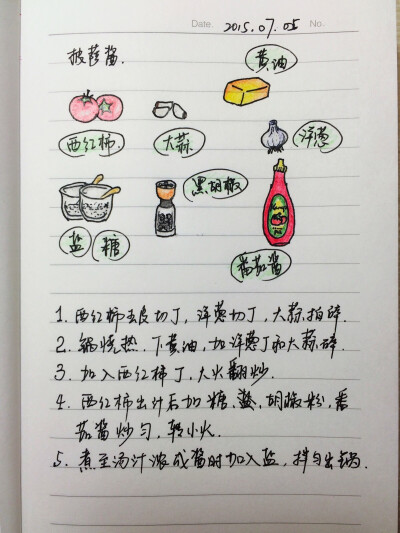 Date. 2015.07.05 No.
披萨酱.
黄油
西红柿.
大蒜.
洋葱
黑胡椒
盐
糖
番茄酱
1. 西红柿去皮切丁, 洋葱切丁, 大蒜拍碎.
2. 锅烧热. 下黄油, 加洋葱丁和大蒜碎.
3. 加入西红柿丁, 大火翻炒.
4. 西红柿出汁后加糖、盐、胡椒粉, 番
茄酱炒匀, 转小火.
5. 煮至汤汁浓成酱时加入盐, 拌匀出锅.